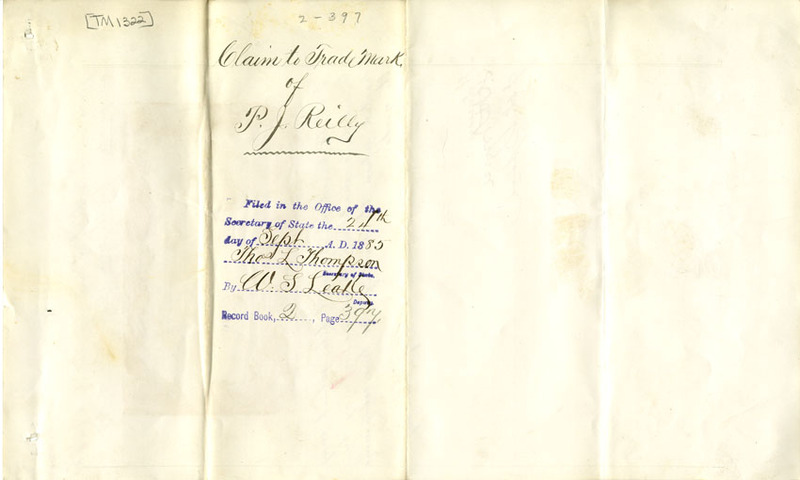 [TM1322]
2-397
Claim to Trade Mark
of
P. J. Reilly
Filed in the Office of the
Secretary of State the
day of Sept A. D. 1885
Thos L Thompson
Secretary of State.
By W. S. Leake
Deputy
Record Book, 2, Page 397